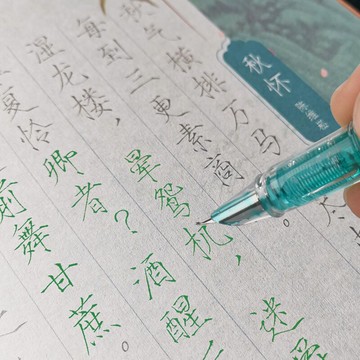 秋怀
陈维崧
秋气横排万马
每到三更素商
湿龙楼，晕鸳机，迷
复怜卿者？酒醒
前舞甘蔗。